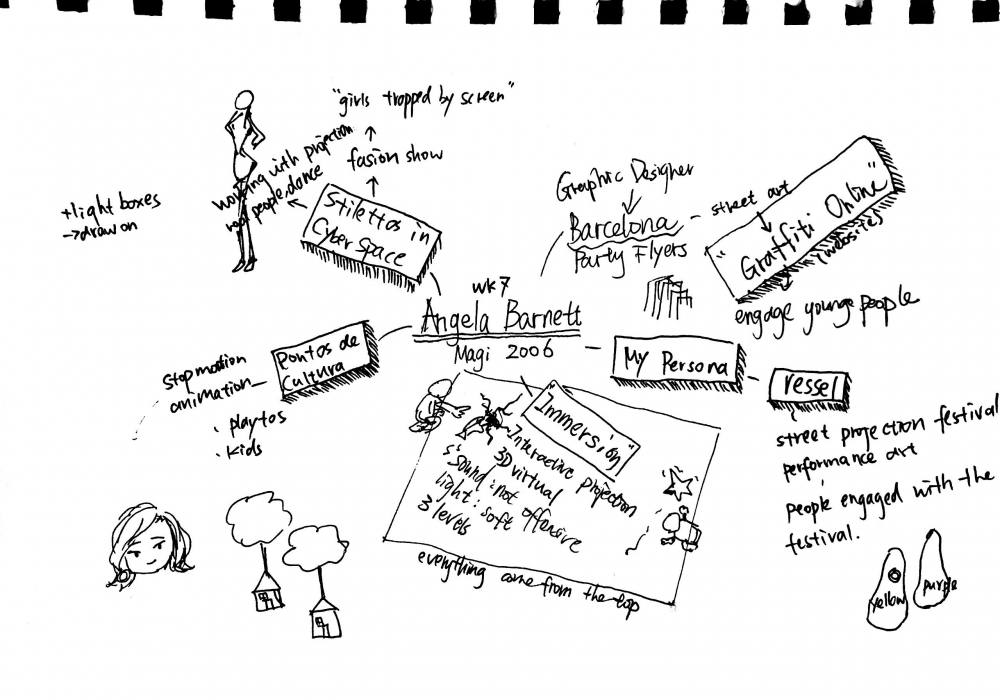 "girls tropped by screen"
fasion show
working with projection
real people, dance
Stilettos in
CyberSpace
+light boxes
→draw on
Graphic Designer
Barcelona
Party Flyers
street art
"Graffiti Online"
(websites)
engage younge people
wk7
Angela Barnett
Magi 2006
My Persona
vessel
street projection festival
performance art
people engaged with the
festival.
Pontos de
Cultura
stopmotion
animation
· playtos
· kids
"Immersion"
Interactive projection
3D virtual
sound : not offensive
light : soft
3 levels
everything come from the top
yellow
purple